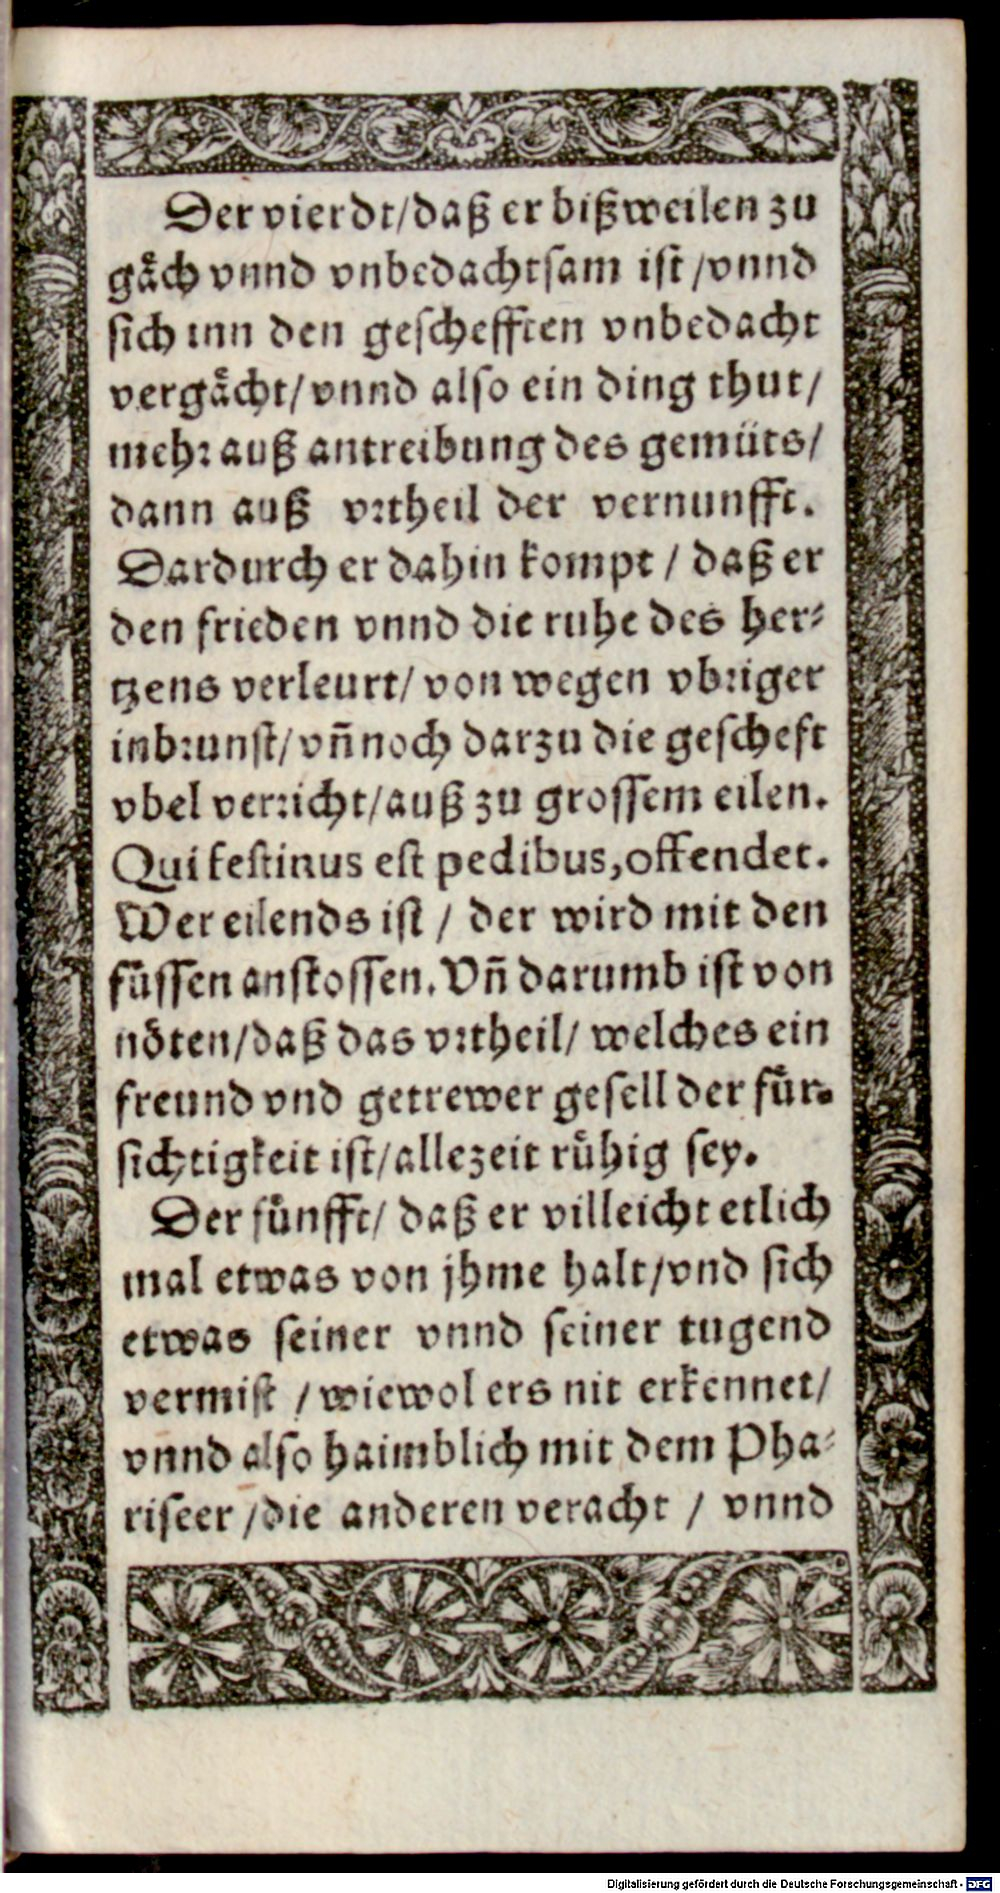 Der vierdt/daß er bißweilen zu
gaͤch vnnd vnbedachtsam ist/vnnd
sich inn den geschefften vnbedacht
vergaͤcht/vnnd also ein ding thut/
mehr auß antreibung des gemüts/
dann auß vrtheil der vernunfft.
Dardurch er dahin kompt / daß er
den frieden vnnd die ruhe des her⸗
tzens verleurt/ von wegen vbriger
inbrunst/vn̄ noch darzu die gescheft
vbel verricht/auß zu grossem eilen.
Qui festinus est pedibus, offendet.
Wer eilends ist / der wird mit den
fuͤssen anstossen. Vn̄ darumb ist von
noͤten/daß das vrtheil/ welches ein
freund vnd getrewer gesell der fuͤr⸗
sichtigkeit ist/allezeit ruͤhig sey.
Der fuͤnfft/ daß er villeicht etlich
mal etwas von jhme halt/vnd sich
etwas seiner vnnd seiner tugend
vermist / wiewol ers nit erkennet/
vnnd also haimblich mit dem Pha⸗
riseer /die anderen veracht / vnnd
Digitalisierung gefördert durch die Deutsche Forschungsgemeinschaft - DFG